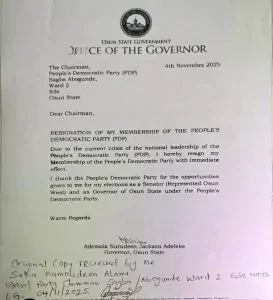 OSUN STATE GOVERNMENT
OFFICE OF THE GOVERNOR
4th November 2025
The Chairman,
People's Democratic Party (PDP)
Sagba Abogunde,
Ward 2
Ede
Osun State
Dear Chairman,
RESIGNATION OF MY MEMBERSHIP OF THE PEOPLE'S
DEMOCRATIC PARTY (PDP)
Due to the current crisis of the national leadership of the
People's Democratic Party (PDP), I hereby resign my
Membership of the People's Democratic Party with immediate
effect.
I thank the People's Democratic Party for the opportunities
given to me for my elections as a Senator (Represented Osun
West) and as Governor of Osun State under the People's
Democratic Party.
Warm Regards
Ademola Nurudeen Jackson Adeleke
Governor, Osun State
Original Copy received by Me
Ward Party Chairman Sagba/Abogunde Ward 2 Ede North
LG. 04/11/2025